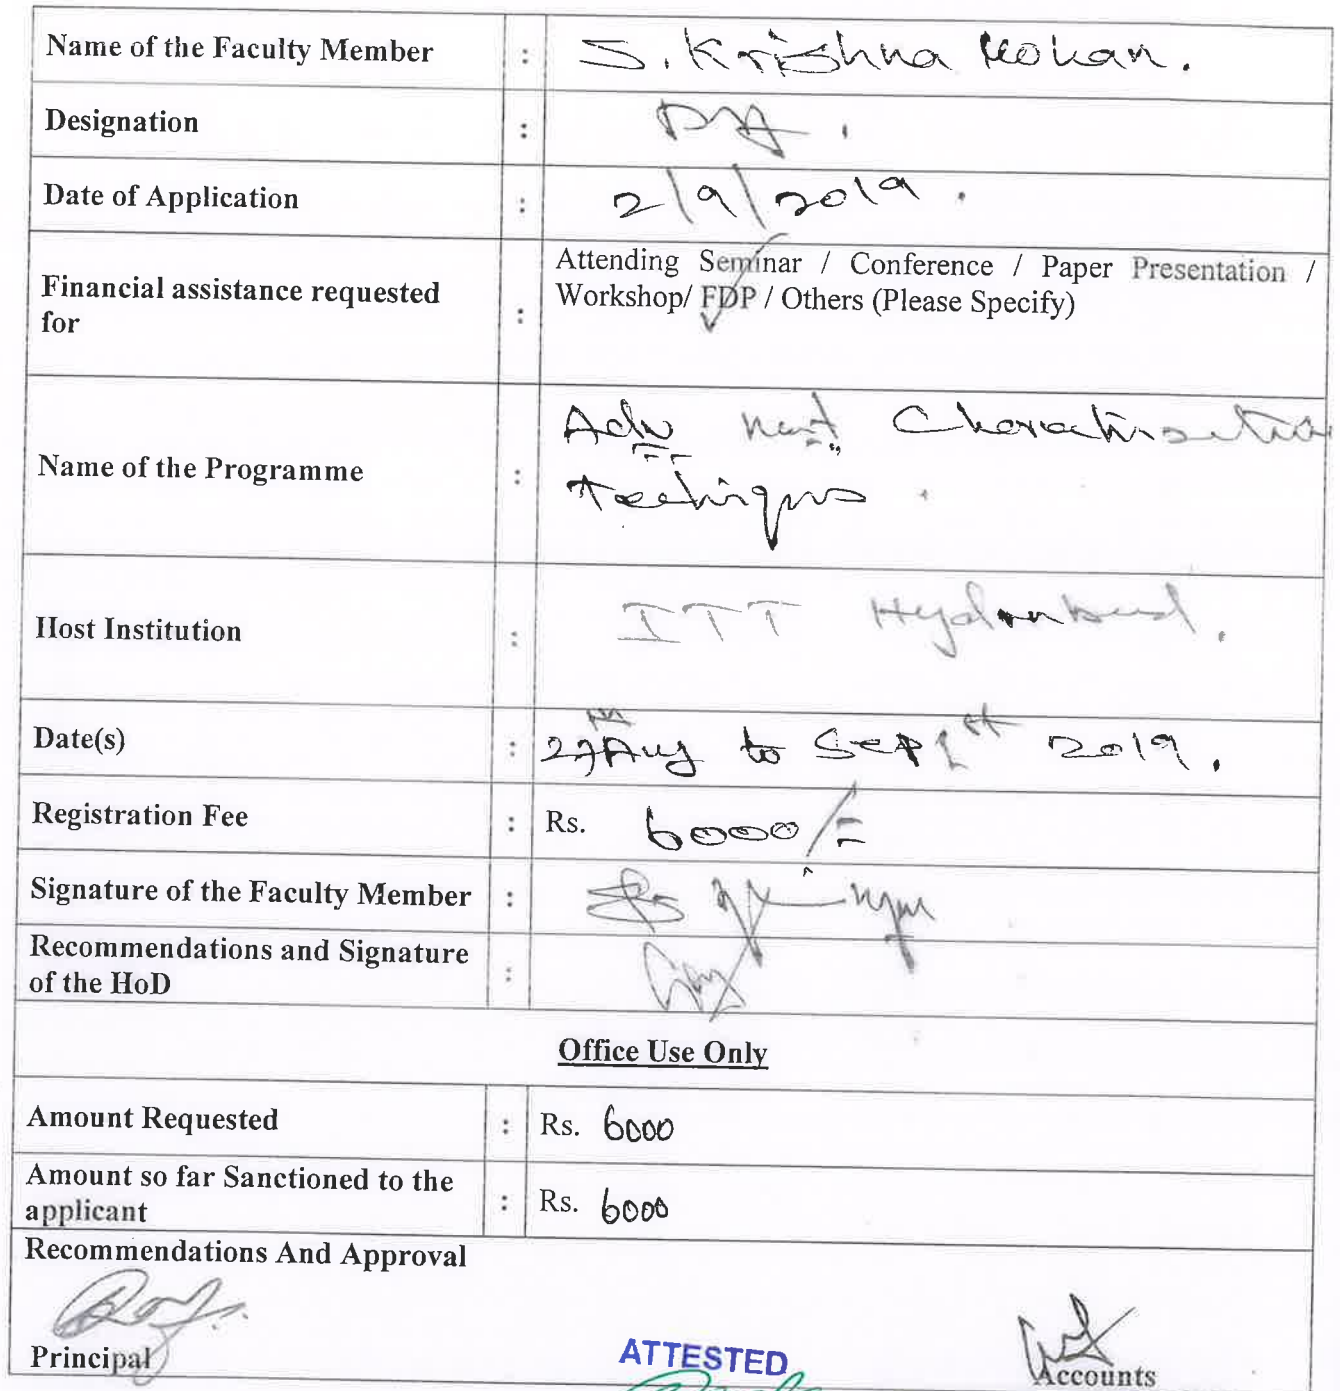 Name of the Faculty Member : S. Krishna Mohan.
Designation :
Date of Application : 2/9/2019.
Financial assistance requested for : Attending Seminar / Conference / Paper Presentation /
Workshop/ FDP / Others (Please Specify)
Name of the Programme : Adv Mat. Charactrisation
Techiques.
Host Institution : IIT Hyderabad.
Date(s) : 27th Aug to Sep 1st 2019.
Registration Fee : Rs. 6000/=
Signature of the Faculty Member :
Recommendations and Signature
of the HoD :
Office Use Only
Amount Requested : Rs. 6000
Amount so far Sanctioned to the
applicant : Rs. 6000
Recommendations And Approval
Principal
ATTESTED
Accounts